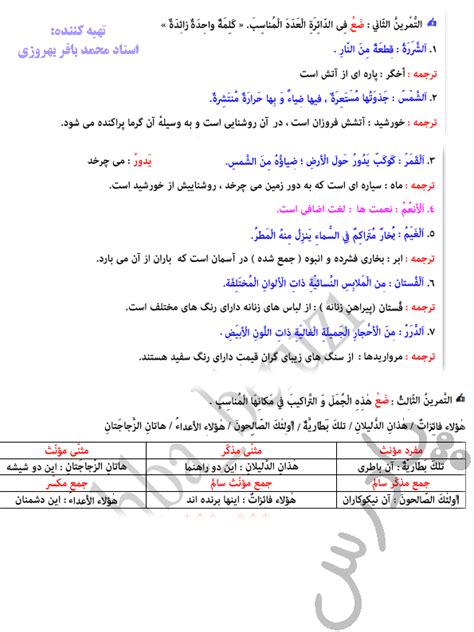 تهیه کننده:
استاد محمد باقر بهروزی
التَّمرینُ الثّاني : ضَعْ فِی الدّائِرَةِ الْعَدَدَ الْمُناسِبَ. « كَلِمَةٌ واحِدَةٌ زائِدَةٌ »
۱. اَلشَّرَرَةُ : قِطعَةٌ مِنَ النّارِ .
ترجمه : اَخگر : پاره ای از آتش است
۲. اَلشَّمْسُ : جَذوَتُها مُستَعِرَةٌ ، فیها ضِیاءٌ وَ بِها حَرارَةٌ مُنتَشِرَةٌ.
ترجمه : خورشید : آتشش فروزان است ، در آن روشنایی است و به وسیلهٔ آن گرما پراکنده می شود.
۳. اَلْقَمَرُ : كَوكَبٌ يَدُورُ حَولَ الْأَرضِ ؛ ضِياؤُهُ مِنَ الشَّمْسِ. یَدورُ : می چرخد
ترجمه : ماه : سیاره ای است که به دور زمین می چرخد ، روشناییش از خورشید است.
٤. اَلْأَنعُمُ : نعمت ها : لغت اضافی است.
۵. اَلْغَيْمُ : بُخارٌ مُتَراكِمٌ فِي السَّماءِ يَنزِلُ مِنهُ الْمَطَرُ.
ترجمه : ابر : بخاری فشرده و انبوه ( جمع شده ) در آسمان است که باران از آن می بارد.
۶. اَلْفُستان : مِنَ الْمَلابِسِ النِّسائيَّةِ ذاتِ الْأَلوانِ الْمُختَلِفَةِ.
ترجمه : فُستان (پیراهنِ زنانه ) : از لباس های زنانه دارای رنگ های مختلف است.
۷. اَلدُّرَرُ : مِنَ الْأَحْجارِ الْجَميلَةِ الْغاليَةِ ذاتِ اللَّونِ الْأَبيَضِ .
ترجمه : مرواریدها : از سنگ های زیبای گران قیمت دارای رنگ سفید هستند.
التمرينُ الثالثُ : ضَعْ هٰذِهِ الْجُمَلَ وَ التَّراكيبَ في مَكانِهَا الْمُناسِبِ .
هٰؤُلاءِ فائزاتٌ / هٰذانِ الدَّليلانِ / تِلكَ بَطّاريَّةٌ / أُولٰئِكَ الصّالِحونَ / هٰؤُلاءِ الْأَعداءُ / هاتانِ الزُّجاجَتانِ
مفرد مؤنّث مثنّی مذکّر مثنّی مؤنّث
تِلْكَ بَطّارِيَّةٌ : آن باطری هٰذانِ الدَّليلانِ : این دو راهنما هاتانِ الزُّجاجَتانِ : این دو شیشه
جمع مذکّر سالم جمع مؤنّث سالم جمع مکسر
أُولٰئِكَ الصّالِحونَ : آن نیکوکاران هٰؤُلاءِ فائزاتٌ : اینها برنده اند هٰؤُلاءِ الْأَعداءُ : این دشمنان